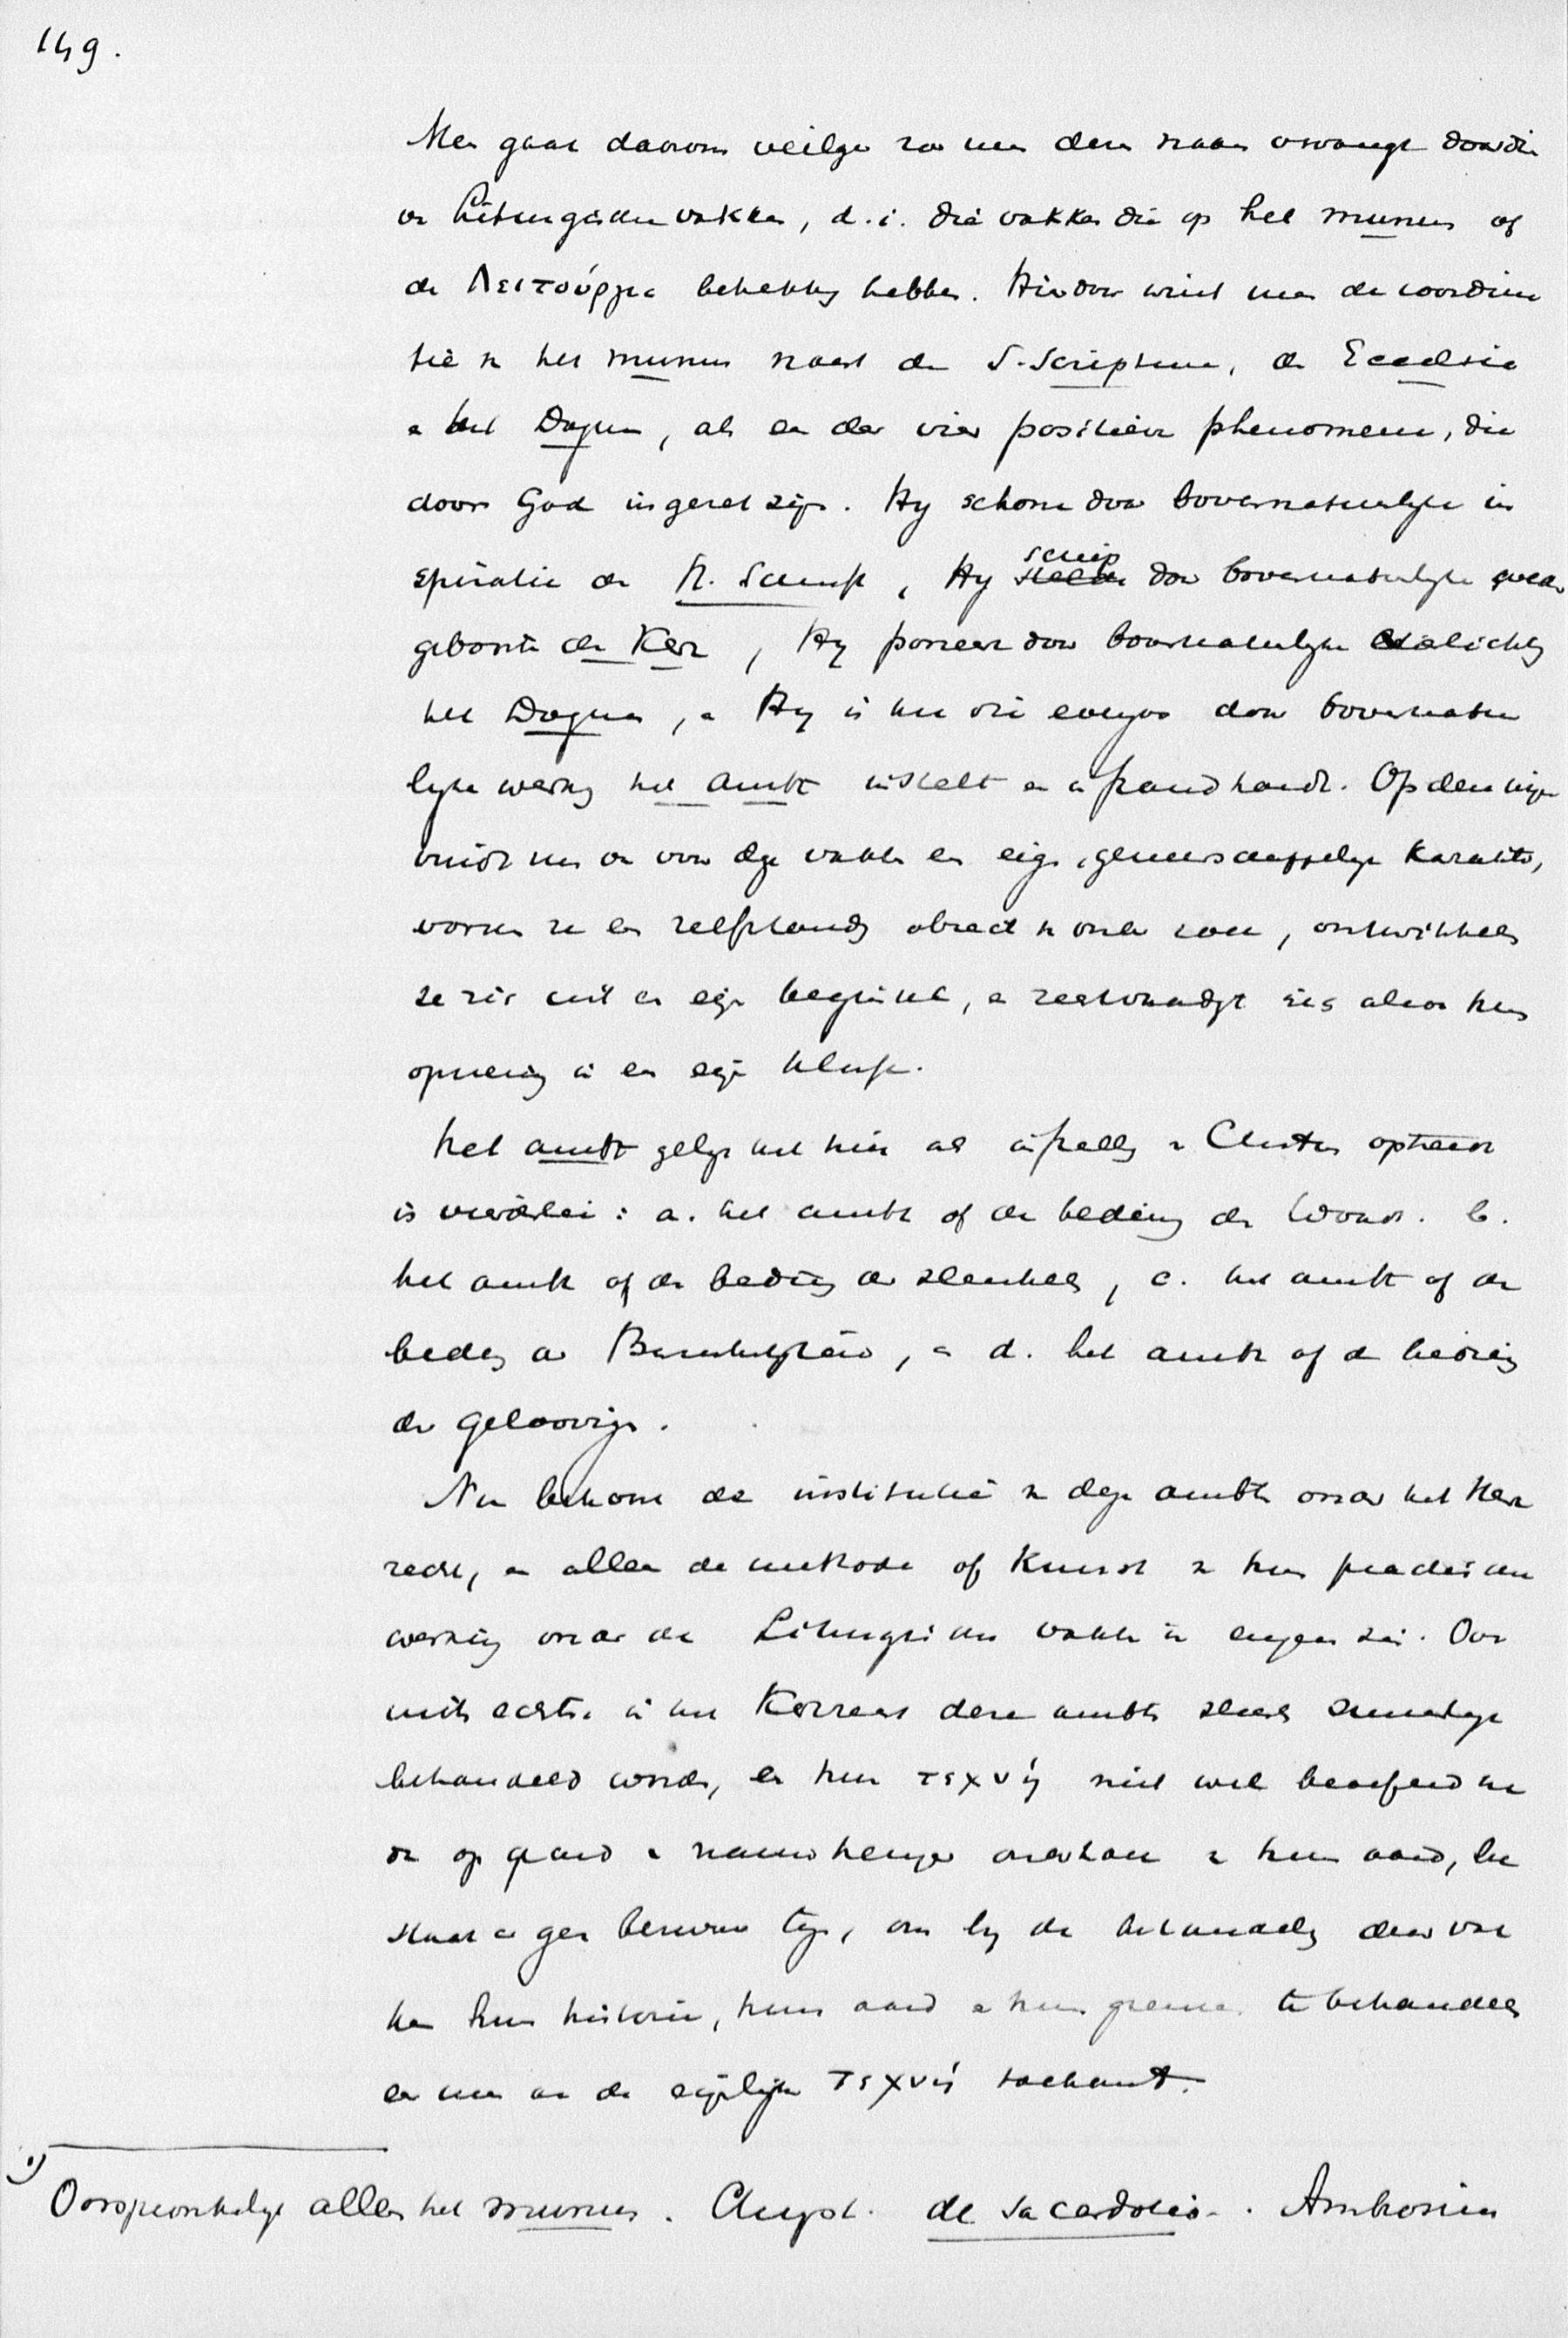 149.
Men gaat daarom veiliger zoo men den naam vervangt door die
van Liturgische vakken, d.i. die vakken die op het munus of
de Λειτούργια betrekking hebben. Hierdoor wint men de coordina
tie van het munus naast de S. Scriptura, de Ecclesia
en het Dogma, als een der vier positieve phenomena, die
door God ingezet zijn. Hij schonk door bovennatuurlijke in
spiratie de H. Schrift, Hij schiep door bovennatuurlijke weder
geboorte de Kerk, Hij poneert door bovennatuurlijke verlichting
het Dogma, en Hij is het die evenzoo door bovennatuur
lijke werking het ambt instelt en in stand houdt. Op deze wijze
vindt men voor deze vakken een eigen, gemeenschappelijk karakter,
vormen ze een zelfstandig object van onderzoek, ontwikkelen
ze zich uit een eigen beginsel, en rechtvaardigt zich alzoo hun
opneming in een eigen klasse.
Het ambt gelijk het hier als instelling van Christus optreedt
is vierderlei: a. het ambt of de bediening des Woords. b.
het ambt of de bediening der sleutelen, c. het ambt of de
bediening der Barmhartigheid, en d. het ambt of de bediening
der geloovigen.
Nu behoort de institutie van deze ambten onder het Kerk
recht, en alleen de methode of kunst van hun practische
werking onder de Liturgische vakken in engeren zin. Over
mits echter in het Kerkrecht deze ambten slechts summier
behandeld worden, en hun τεχνή niet wel beoefend kan
dan op grond van nauwkeuriger onderzoek van hun aard, be
staat er geen bezwaar tegen, om bij de behandeling dezer vak
ken hun historie, hun aard en hun grenzen te behandelen
eer men aan de eigenlijke τεχνή toekomt.
1) Oorspronkelijk alleen het munus. Chrysost. de Sacerdotio. Ambrosius